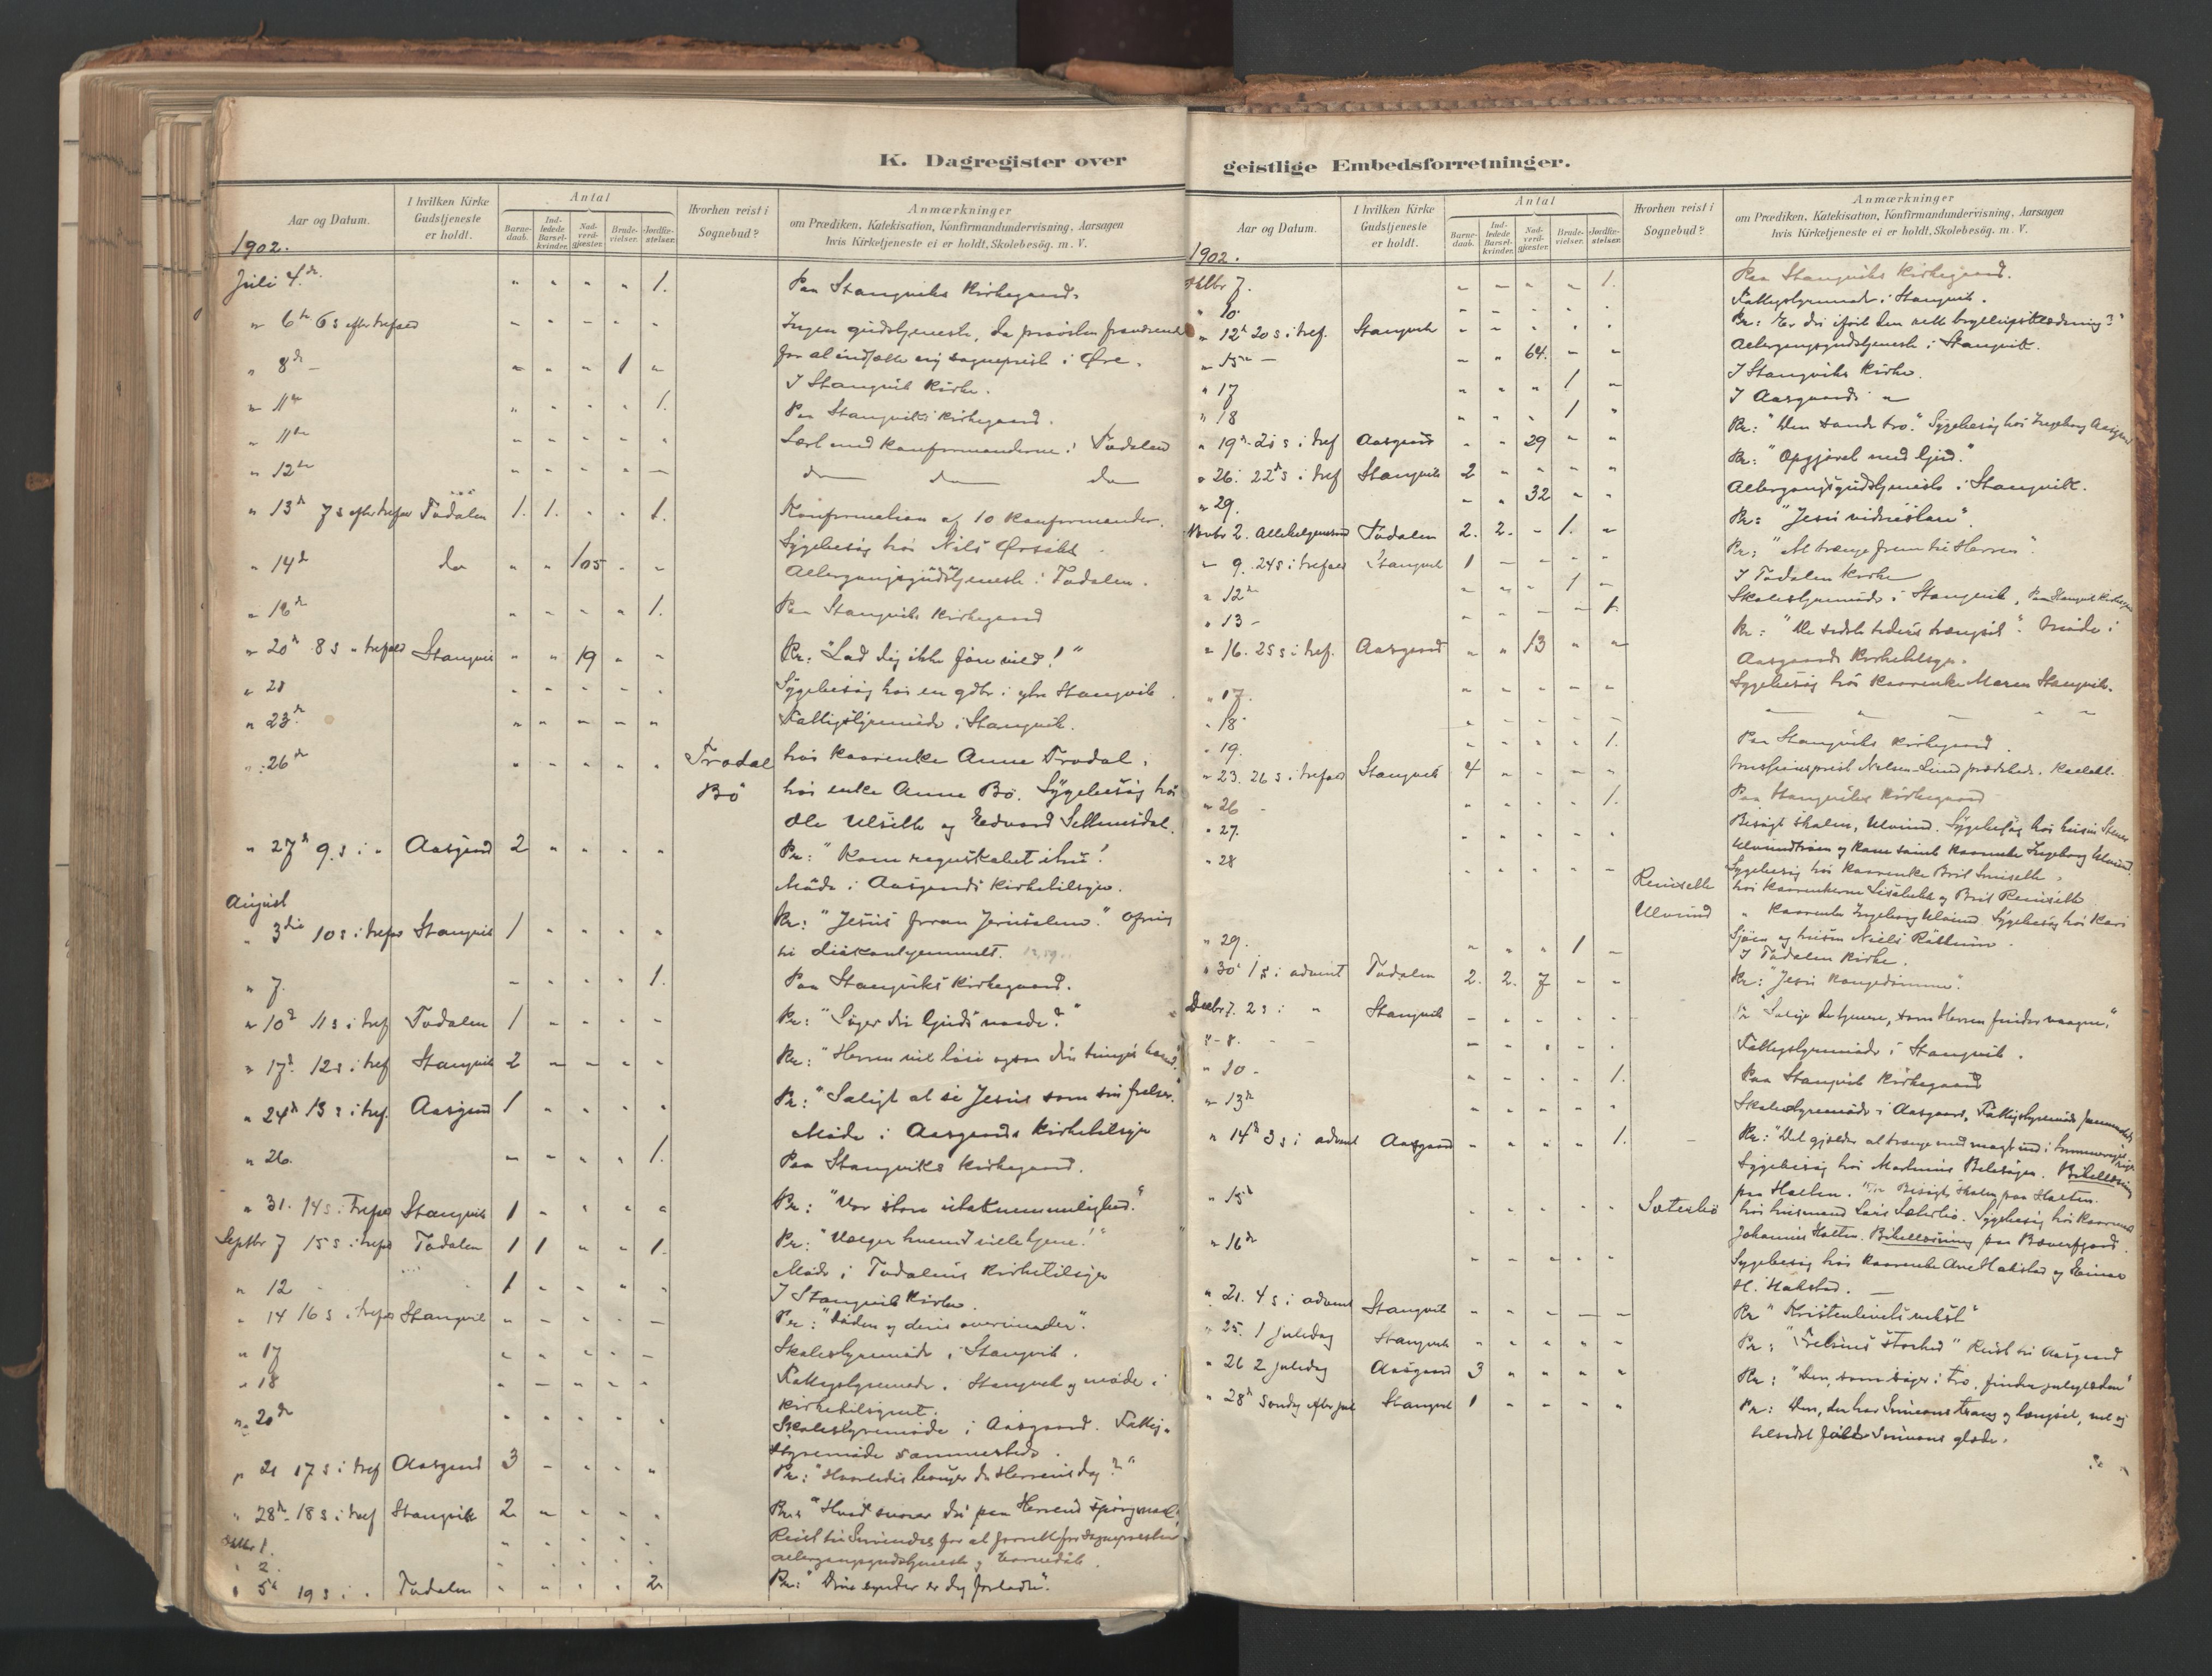 K. Dagregister over
Aar og Datum.
I hvilken Kirke Gudstjeneste er holdt.
Antal
Barne-daab.
Ind-ledede Barsel-kvinder.
Nad-verd-gjæster.
Brude-vielser.
Jordfæ-stelser.
Hvorhen reist i Sognebud?
Anmærkninger
om Prædiken, Katekisation, Konfirmandundervisning, Aarsagen
hvis Kirketjeneste ei er holdt, Skolebesög. m. V.
1902.
Juli 4de " " " " 1. Paa Stangviks Kirkegaard.
" 6te 6 s efter trefold - - - - - Ingen gudstjeneste, da provsten fraværende
for at indsætte ny sogneprest i Øre.
" 8de - " " " 1 " I Stangvik Kirke.
" 11te " " " " 1. Paa Stangviks Kirkegaard.
" 11te " " " " " Læst med konfirmanderne i Todalen
" 12te - - - - - do do do
" 13de 7 s efter trefold Todalen 1. 1. " " 1. Konfirmation af 10 konfirmander.
Sygebesøg hos Nils
" 14de do " " 105 " " Altergangsgudstjeneste i Todalen.
" 18de " " " " 1. Paa Stangviks Kirkegaard
" 20de 8 s " trefold Stangvik " " 19 " " Pr: "Lad dig ikke føre vild!"
" 21 " " " " " Sygebesøg hos en gdbr i ytre Stangvik.
" 23de " " " " " Fattigstyremøde i Stangvik.
" 26de " " " " " Trodal hos kaarenke Anne Trodal.
Bö hos enke Anne Bö. Sygebesøg hos
Ole Ulseth og Edvard
" 27de 9 s i " Aasgard 2 " " " " Pr: "Kom regnskabet ihu!"
Møde i Aasgards Kirketilsyn.
August
" 3die 10 s i trefold Stangvik 1 " " " " Pr: "Jesus foran Jerusalem." Ofring
til diakonhjemmet.
" 7. - " " " 1. Paa Stangviks Kirkegaard.
" 10de 11 s i tref Todalen 1 " " " - Pr: "Søger du Guds naade?"
" 17de 12 s i tref Stangvik 2 - - " " Pr: "Herren vil løse ogsaa din tunges baand."
" 24de 13 s i tref. Aasgard 1 " " " " Pr: "Saligt at se Jesus som sin frelser."
Møde i Aasgards Kirketilsyn
" 26. " " " " 1. Paa Stangviks Kirkegaard.
" 31. 14 s i Trefold Stangvik 1 " " " " Pr: "Vor store utaknemmelighed."
Septbr 7 15 s i trefold Todalen 1 1 " " 1. Pr: "Vælger hvem I ville tjene!"
Møde i Todalens Kirketilsyn
" 12 1 " " " " I Stangvik Kirke.
" 14 16 s i trefold Stangvik " " " " - Pr: "Døden og dens overvinder."
" 17 " " " " - Skolestyremøde i Stangvik.
" 18 " - " " " Fattigstyremøde i Stangvik og møde i
kirketilsynet.
" 20de " " " " " Skolestyremøde i Aasgaard. Fattig-
styremøde sammesteds.
" 21 17 s i tref Aasgard 3 - " " " Pr: "Hvorledes bruger du Herrens dag?"
" 28de 18 s i tref Stangvik 2 " " " " Pr: "Hvad svarer du paa Herrens spørgsmaal."
Oktbr 1. Reist til Surendal for at forrette for sognepresten
" 2. altergangsgudstjeneste og barnedaab.
" 5te 19 s i " Todalen " " " " 2 Pr: "Dine synder er dig forladte".
geistlige Embedsforretninger.
Aar og Datum.
I hvilken Kirke Gudstjeneste er holdt.
Antal
Barne-daab.
Ind-ledede Barsel-kvinder.
Nad-verd-gjæster.
Brude-vielser.
Jordfæ-stelser.
Hvorhen reist i Sognebud?
Anmærkninger
om Prædiken, Katekisation, Konfirmandundervisning, Aarsagen
hvis Kirketjeneste ei er holdt, Skolebesög. m. V.
1902.
Oktbr 7. " - " " 1. Paa Stangviks Kirkegaard.
" 10. - - - - - Fattigstyremøde i Stangvik.
" 12te 20 s i tref. Stangvik " " " " " Pr: "Er du iført den rette bryllupsklædning?"
" 15de - - " 64. - - Altergangsgudstjeneste i Stangvik.
" 17 " " " 1. - I Stangviks Kirke.
" 18 " " " 1 " I Aasgaards "
" 19de 21 s i tref Aasgaard " " 29 " " Pr: "Den sande tro." Sygebesøg hos Ingeborg Aasgard
" 26. 22de s i tref Stangvik 2 " " " " Pr: "Opgjøret med Gud."
" 29. - " 32 " " Altergangsgudstjeneste i Stangvik.
Novbr 2. Allehelgensd Todalen 2. 2. - 1. " Pr: "Jesu vidnesbyrd".
" 9. 24 s i trefold Stangvik 1 - - - - Pr: "At trænge frem til Herren".
" 12te - - - 1 - I Todalen Kirke
" 13 - " - - - 1. Skolestyremøde i Stangvik. Paa Stangvik Kirkegaard
" 16. 25 s i tref. Aasgaard " " 13 " " Pr: "De sidste tiders trængsel". Møde i
Aasgaards Kirketilsyn.
" 17. " " " " " Sygebesøg hos kaarenke Maren Stangvik.
" 18. - - - - - " " " " "
" 19. " " " " 1. Paa Stangviks Kirkegaard.
" 23. 26 s i trefold Stangvik 4 " " - " Missionsprest Nielsen-Lund prædikede.
" 26 - " " " " 1. Paa Stangviks Kirkegaard
" 27. " " " " " Besøgt skolen, Ulvund. Sygebesøg hos
og kone samt kaarenke Ingeborg Ulvund.
" 28 " " " " - Sygebesøg hos kaarenke Brit
hos kaarenkerne Lisabeth og Brit
Ulvund " kaarenke Ingeborg Ulvund. Sygebesøg hos Kari
Sjøen og husm Niels
" 29. " " " 1 - I Todalen Kirke.
" 30te 1 s i advent Todalen 2. 2. 7 - " Pr: "Jesu kongedømme".
Decbr 7. 2 s i " Stangvik - " " " " Pr "Salige de tjenere, som Herren finder vaagne."
" - 8. - - " " " Fattigstyremøde i Stangvik.
" 10 - " " " " 1. Paa Stangvik Kirkegaard
" 13de " " " " " Skolestyremøde i Aasgaard. Fattigstyremøde sammesteds
" 14de 3 s i advent Aasgaard " " " " 1. Pr: "Det gjælder at trænge med magt ind i himmeriges rige
Sygebesøg hos Martinus Bolesøyen. Bibellæsning
paa Halten. Besøgt skolen paa Halten.
" 15de " " " " " Sæterbø hos husmand Lars Sæterbø. Sygebesøg hos kaarmand
Johannes Halten. Bibellæsning paa Bæverfjord.
" 16de - - - " " Sygebesøg hos kaarenke Ane Hakstad og Einar
H. Hakstad.
" 21. 4 s i advent Stangvik " " - - - Pr "Kristenlivets vekst"
" 25. 1 juledag Stangvik " " " " " Pr: "Frelsens storhed" Reist til Aasgaard
" 26 2 juledag Aasgaard 3 " " " " Pr: "Den, som søger i tro, finder juleglæden"
" 28de Søndag efter jul Stangvik 1 " " " " Pr: Den, der har Simeons trang og længsel, vil og
tilsidst faa Simeons glæde.